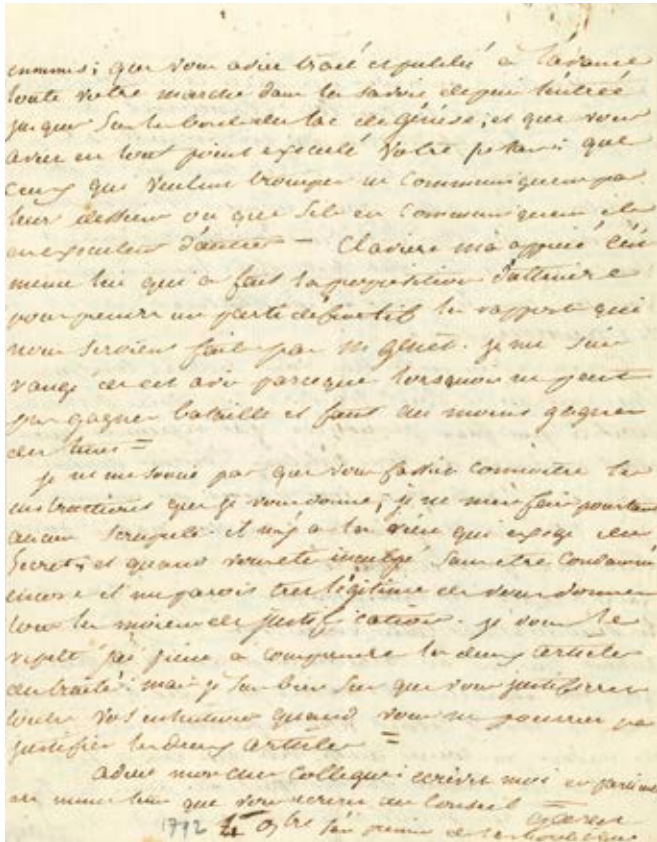 ennemis; que vous aviez tracé et publié à l'avance
toute votre marche dans la Savoie depuis l'entrée
jusques sur les bords du lac de Génève; et que vous
aviez en tout point executé votre que
ceux qui veulent tromper ne communiquent pas
leur dessein ou que s'ils en communiquent ils
en executent d'autres — Claviere m'a appuié c'est
meme lui qui a fait la proposition d'attendre
pour prendre un parti définitif le rapport qui
nous seroient fait par m genet. je me suis
rangé de cet avis parceque lorsqu'on ne peut
pas gagner bataille il faut du moins gagner
du tems =
je ne me soucie pas que vous fassiez connoitre les
instructions que je vous donne; je ne m'en fais pourtant
aucun scrupule. il n'y a la rien qui exige du
secret; et quand vous ete inculpé sans etre condamné
encore il me parois tres légitime de vous donner
tous les moiens de justification. je vous le
repete j'ai peine a comprendre les deux articles
du traité: mais je suis bien sur que vous justifierez
toutes vos intentions quand vous ne pourriez pas
justifier les deux articles =
adieu mon cher collegue; ecrives moi en particulier
en meme tems que vous ecrires au Conseil
1792 9bre l'an premier de la République